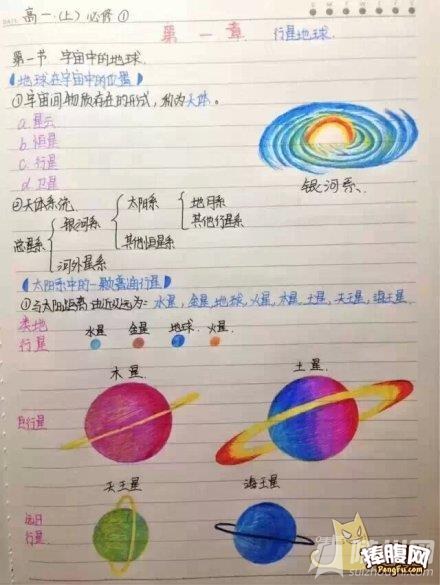 高一.(上) 必修①
第一章. 行星地球.
第一节 宇宙中的地球.
【地球在宇宙中的位置】
①宇宙间物质存在的形式,称为天体。
a.星云
b.恒星
c.行星
d.卫星
银河系.
②天体系统
总星系 { 银河系 { 太阳系 { 地月系
其他行星系
其他恒星系
河外星系
【太阳系中的一颗普通行星】
①与太阳距离由近及远为:水星,金星,地球,火星,木星,土星,天王星,海王星.
类地行星 水星 金星 地球. 火星.
木星 土星.
巨行星
天王星 海王星
远日行星
捧腹网
PengFu.com